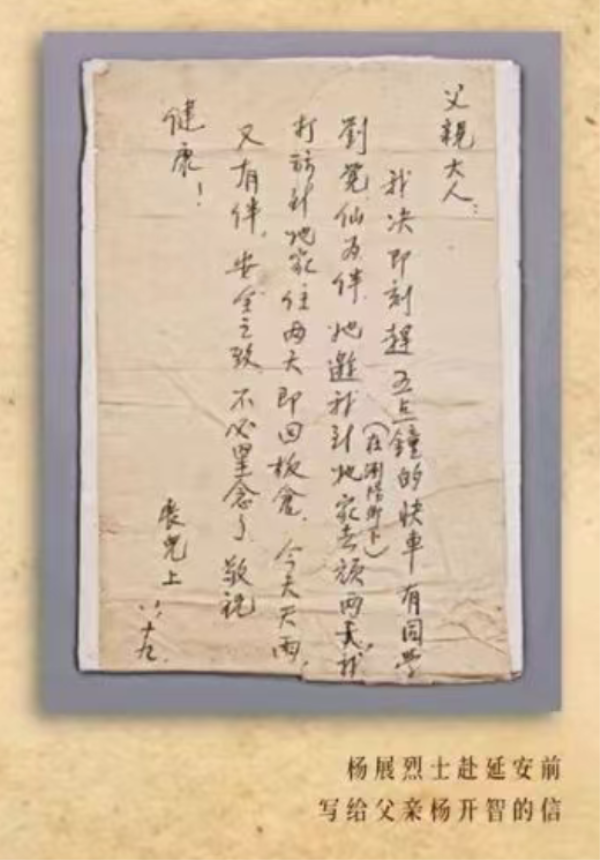 父親大人：
我决即刻趕五点鐘的快車 有同学
劉 仙為伴．她邀我到她家去 两天，我
（在瀏陽鄉下）
打 到她家住两天即回板倉．今天天雨，
又有伴．安全之致 不必罣念了 敬祝
健康！
展兒上
八．十九．
杨展烈士赴延安前
写给父亲杨开智的信